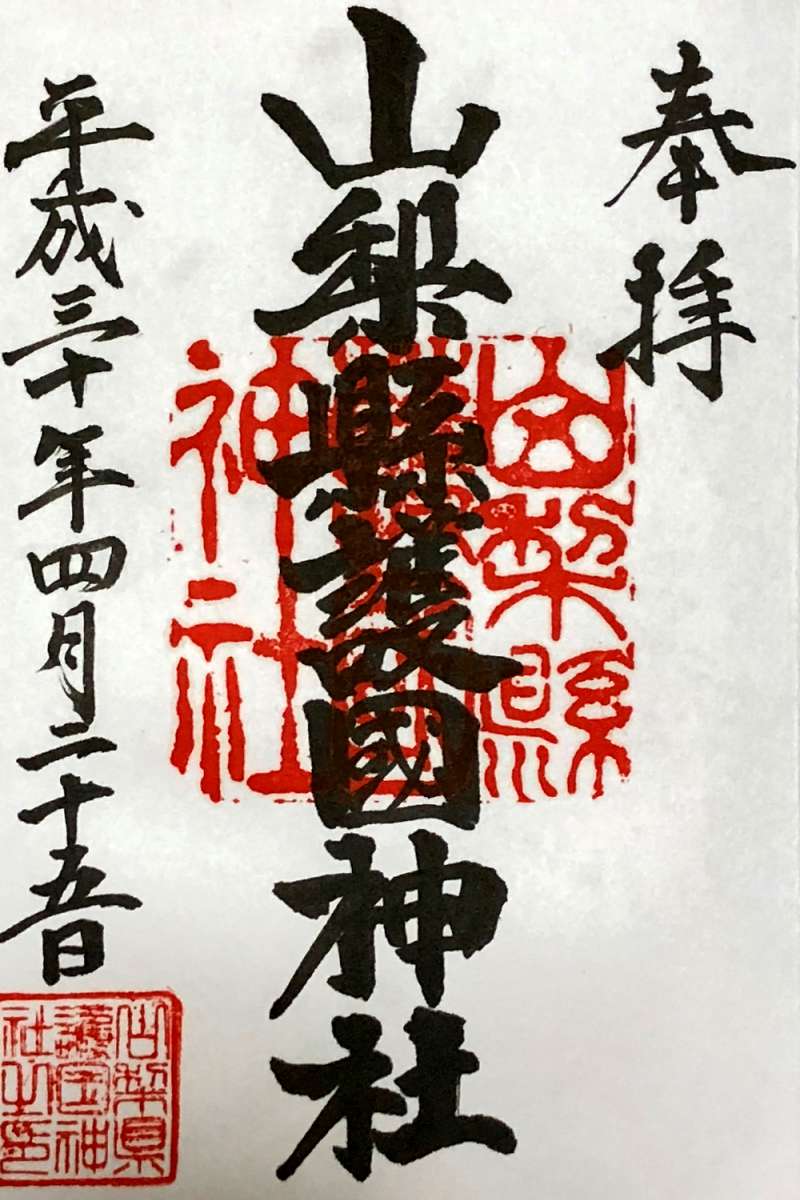 奉拝
山梨縣護國神社
山梨縣護國神社
平成三十年四月二十五日
山梨県護国神社之印